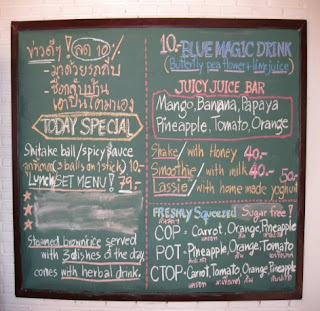 ข่าวดีๆ! ลด 10%
TODAY SPECIAL
Shitake ball/spicy sauce
(3 balls on 1 stick) 10.-
Lunch SET MENU! 79.-
Steamed brownrice served
with 3 dishes of the day
comes with herbal drink.
10.- BLUE MAGIC DRINK
(Butterfly pea flower + lime juice)
JUICY JUICE BAR
Mango, Banana, Papaya
Pineapple, Tomato, Orange
Shake/with Honey 40.-
Smoothie/with milk 40.-
Lassie/with home made yoghurt 50.-
FRESHLY Squeezed Sugar free!
COP = Carrot, Orange, Pineapple
POT = Pineapple, Orange, Tomato
CTOP = Carrot, Tomato, Orange, Pineapple